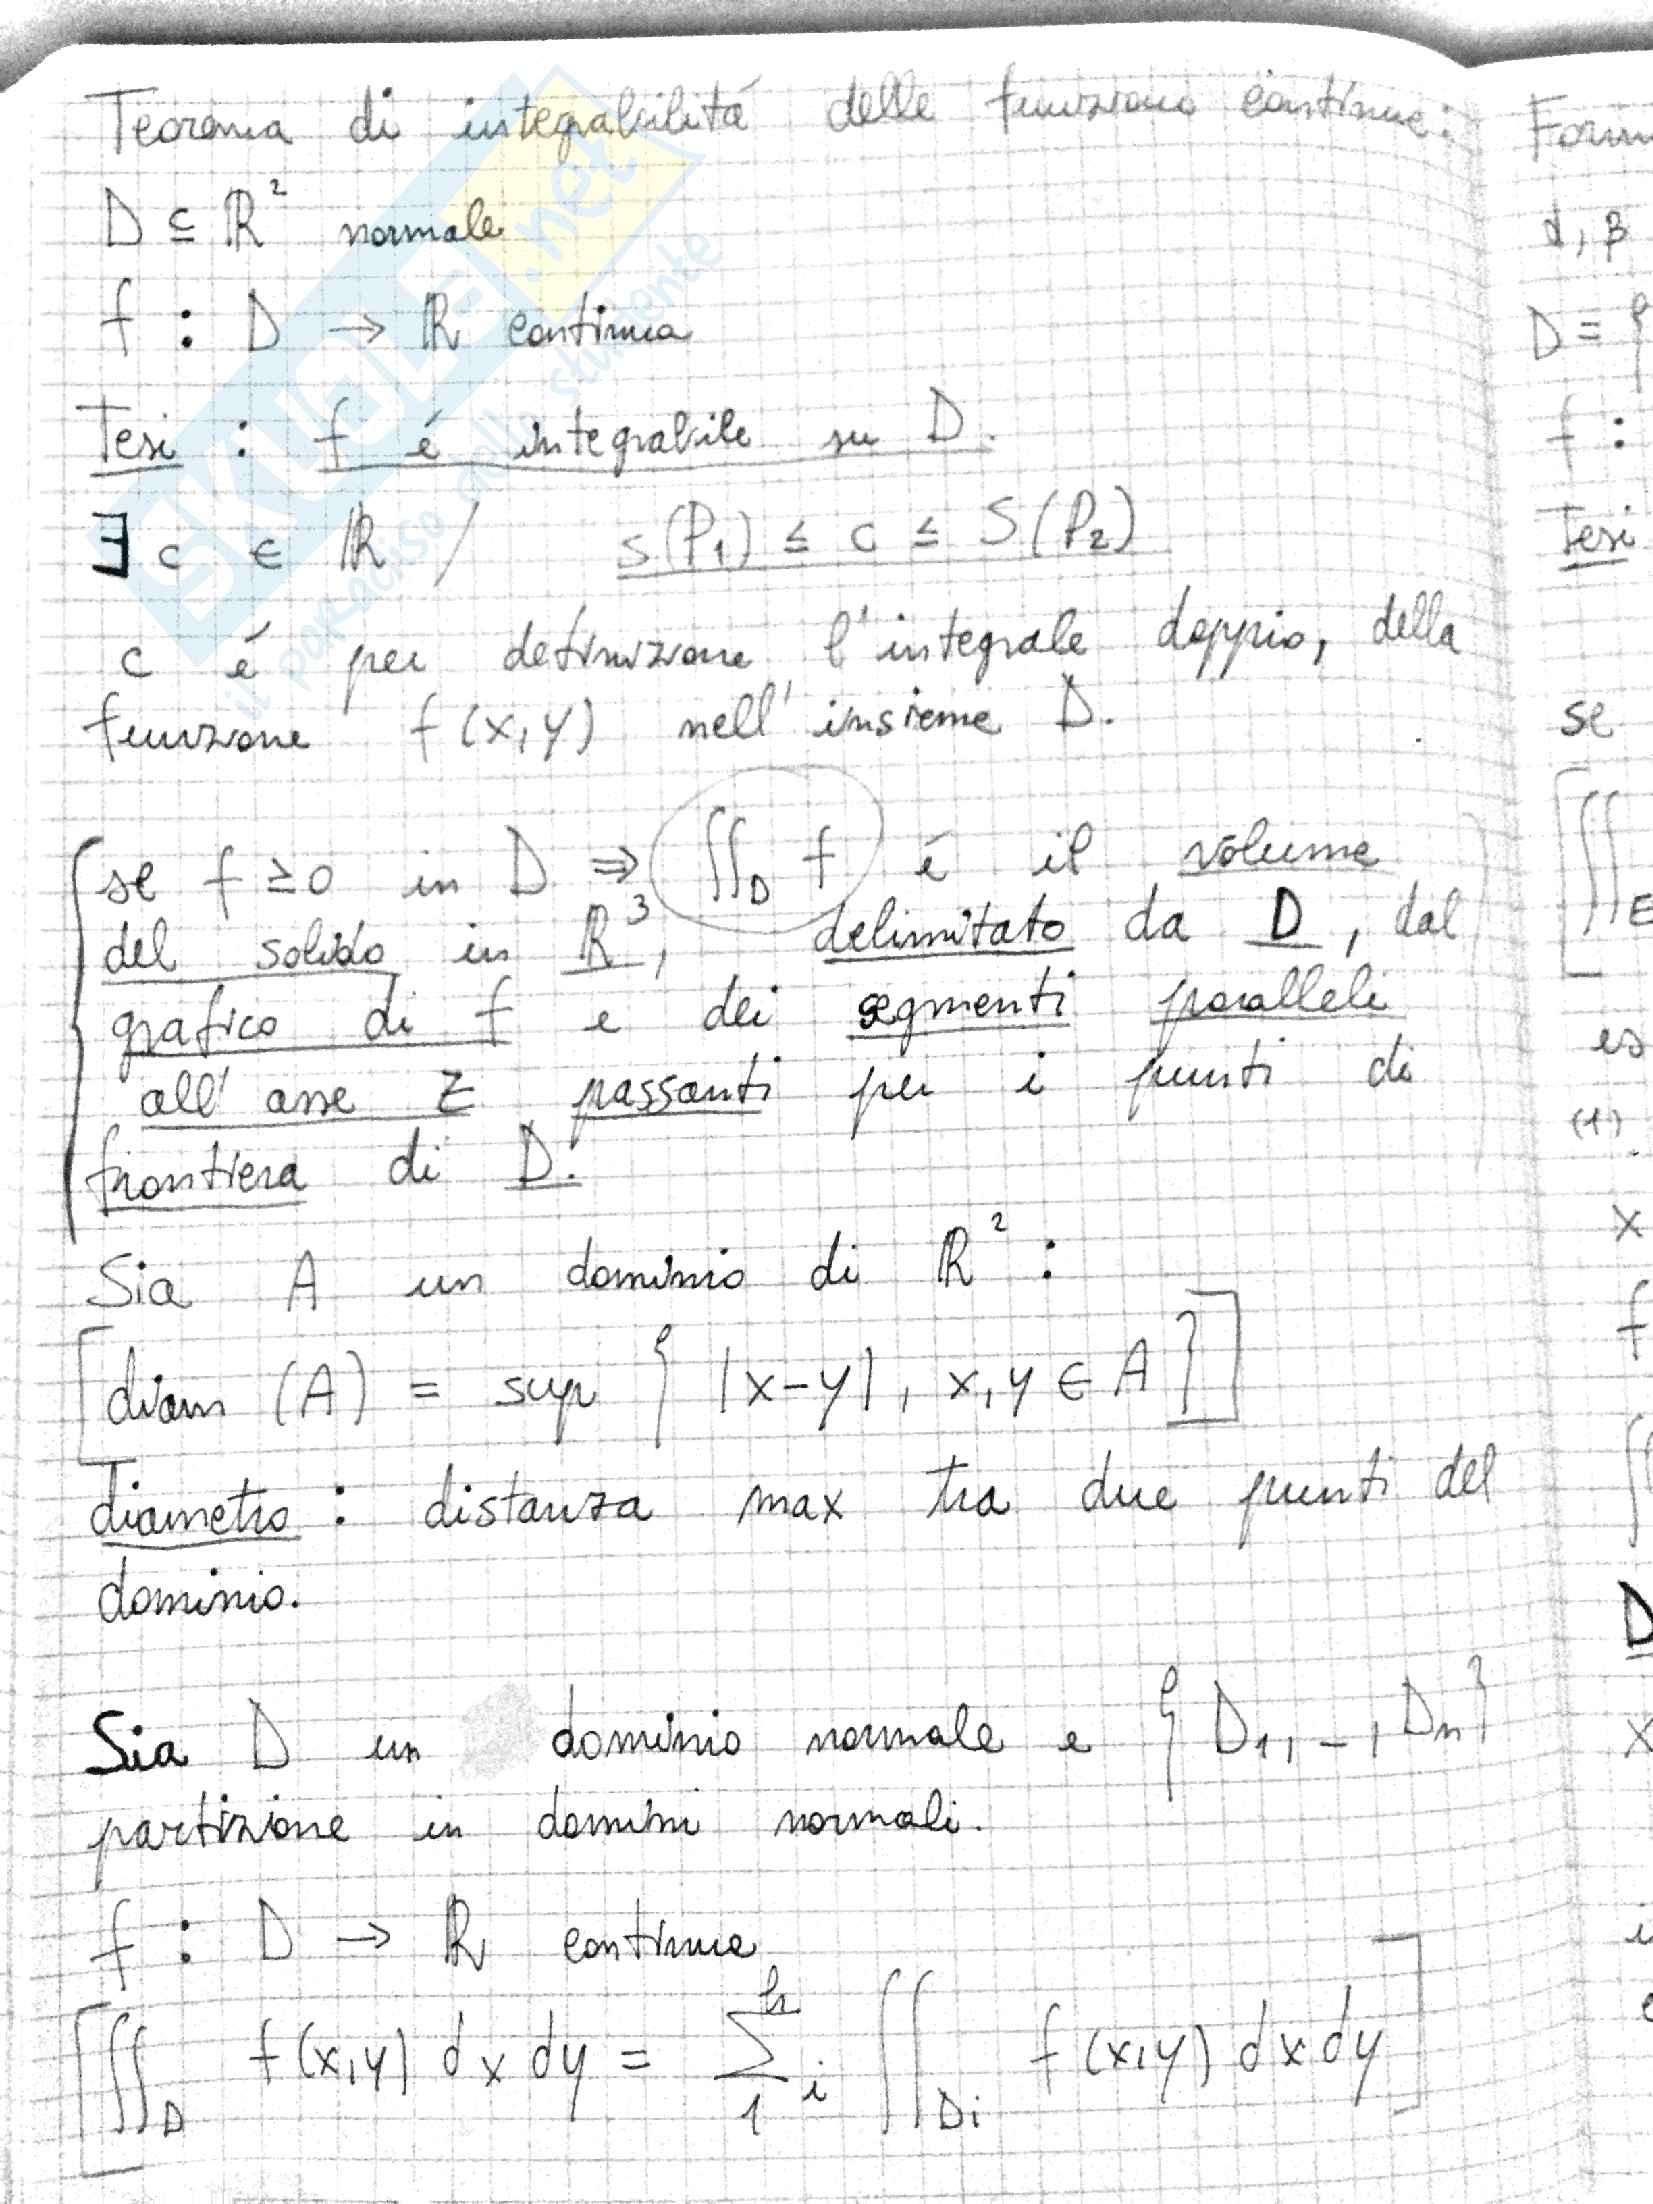 Teorema di integrabilità delle funzioni continue:
D ⊆ ℝ² normale
f : D → ℝ continua
Tesi : f é integrabile su D.
∃ c ∈ ℝ / s(P₁) ≤ c ≤ S(P₂)
c é per definizione l'integrale doppio, della
funzione f(x,y) nell'insieme D.
se f ≥ 0 in D ⇒ ∬_D f é il volume
del solido in ℝ³, delimitato da D, dal
grafico di f e dei segmenti paralleli
all'asse z passanti per i punti di
frontiera di D.
Sia A un dominio di ℝ² :
[diam (A) = sup { |x-y|, x,y ∈ A }]
diametro : distanza max tra due punti del
dominio.
Sia D un dominio normale e { D₁, -, Dₙ}
partizione in domini normali.
f : D → ℝ continua
[∬_D f(x,y) dx dy = Σ₁ᵏ i ∬_Di f(x,y) dx dy]
Form
α, β
D = {
f :
Tesi
se
[∬_E
es
(1)
x
f
∫
D
x
SKUOLA.net
il paradiso dello studente